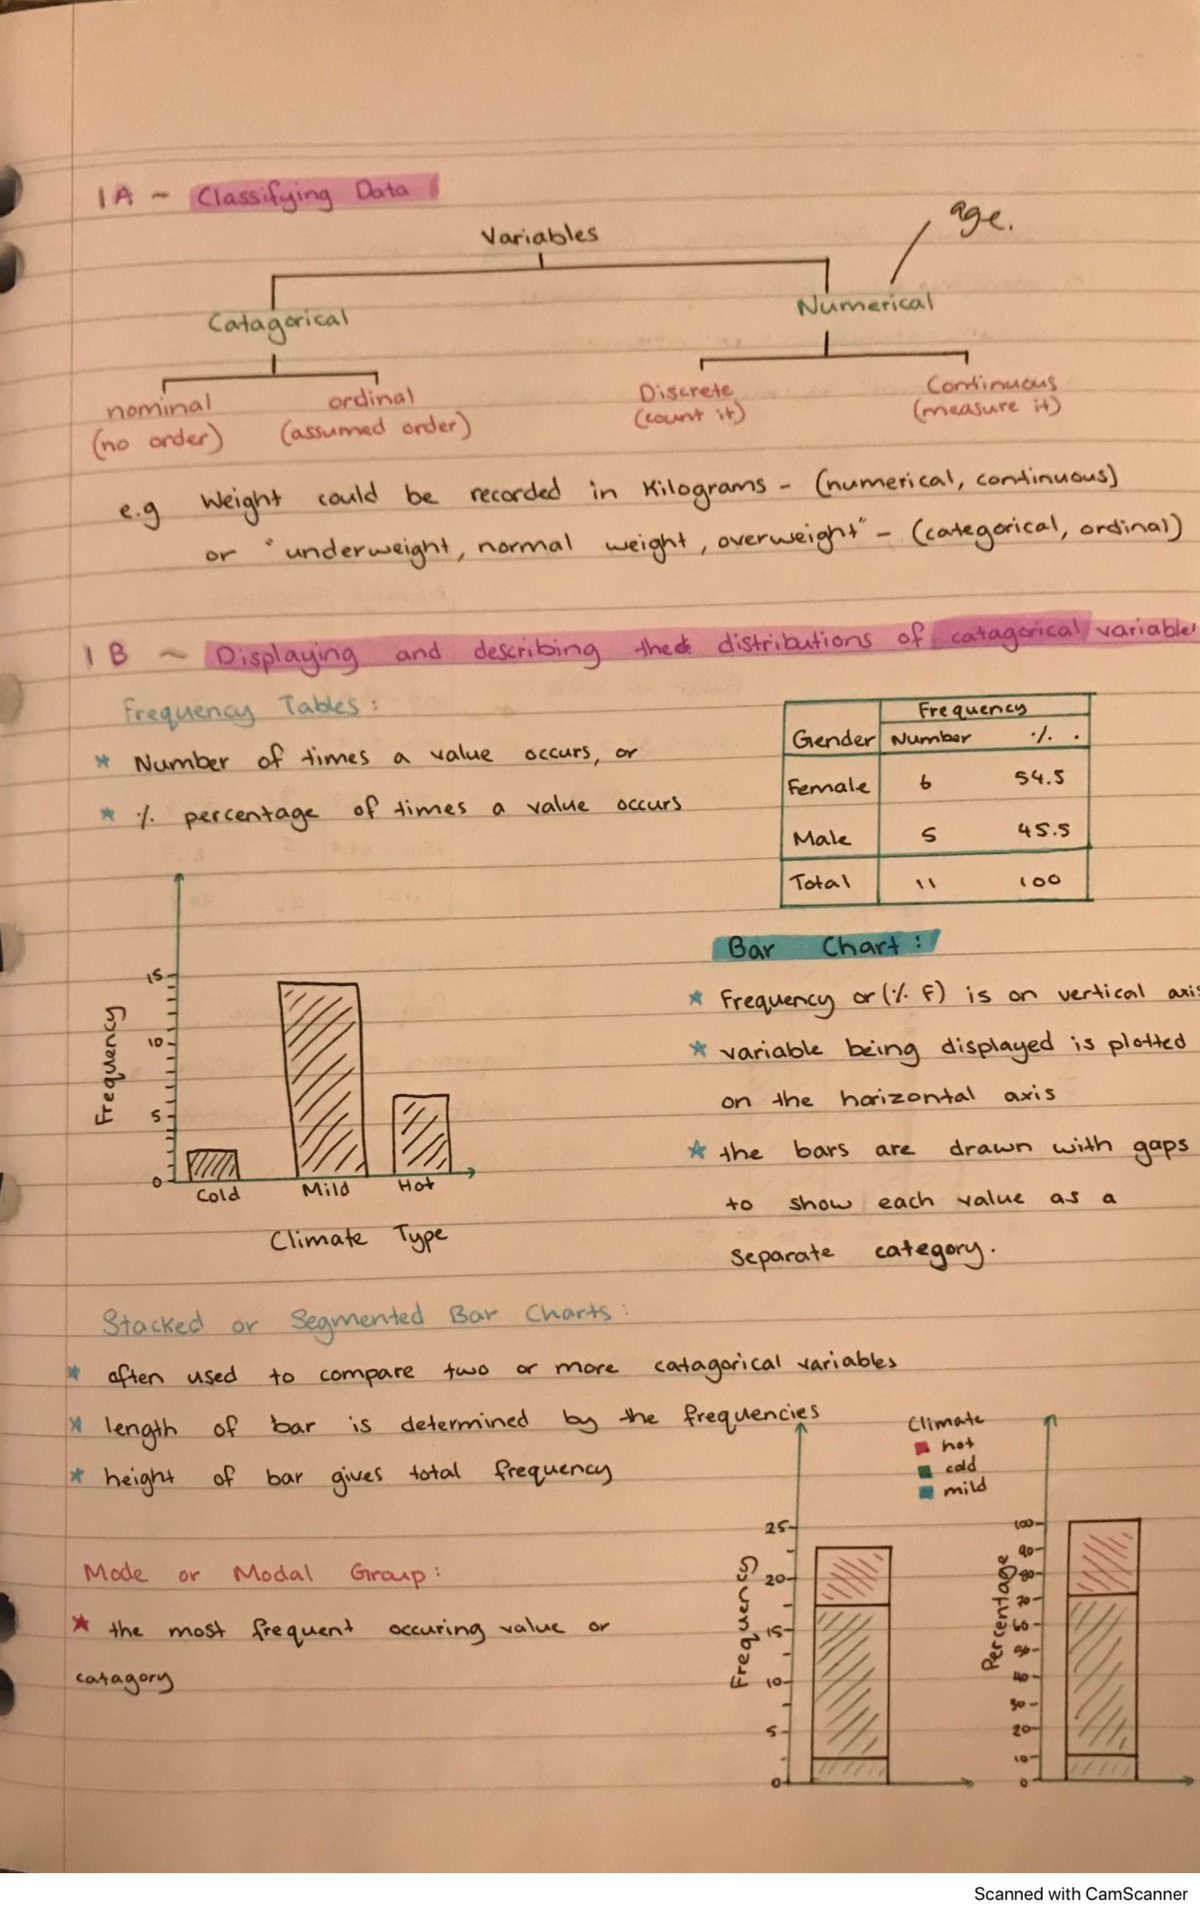 1A ~ Classifying Data
age.
Variables
Catagorical
Numerical
nominal
(no order)
ordinal
(assumed order)
Discrete
(count it)
Continuous
(measure it)
e.g Weight could be recorded in Kilograms - (numerical, continuous)
or "underweight, normal weight, overweight" - (categorical, ordinal)
1B ~ Displaying and describing the distributions of catagorical variables
Frequency Tables:
* Number of times a value occurs, or
* % percentage of times a value occurs
Frequency
Gender Number %.
Female 6 54.5
Male 5 45.5
Total 11 100
15
10
5
0
Frequency
Cold Mild Hot
Climate Type
Bar Chart:
* Frequency or (% F) is on vertical axis
* variable being displayed is plotted
on the horizontal axis
* the bars are drawn with gaps
to show each value as a
separate category.
Stacked or Segmented Bar Charts:
* often used to compare two or more catagorical variables
* length of bar is determined by the frequencies
* height of bar gives total frequency
Mode or Modal Group:
* the most frequent occuring value or
catagory
Climate
hot
cold
mild
25
20
15
10
5
0
Frequency
100
90
80
70
60
50
40
30
20
10
0
Percentage
Scanned with CamScanner